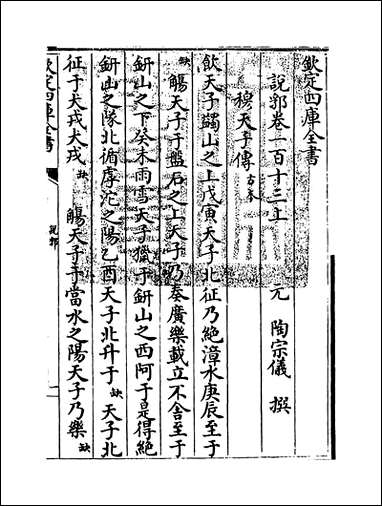 欽定四庫全書
說郛卷一百十三上
元 陶宗儀 撰
穆天子傳 古本
飲天子蠲山之上戊寅天子北征乃絶漳水庚辰至于
缺 觴天子于盤石之上天子乃奏廣樂載立不舍至于
鈃山之下癸未雨雪天子獵于鈃山之西阿于是得絶
鈃山之隊北循虖沱之陽乙酉天子北升于 缺 天子北
征于犬戎犬戎 缺 觴天子于當水之陽天子乃樂 缺
欽定四庫全書
說郛
一